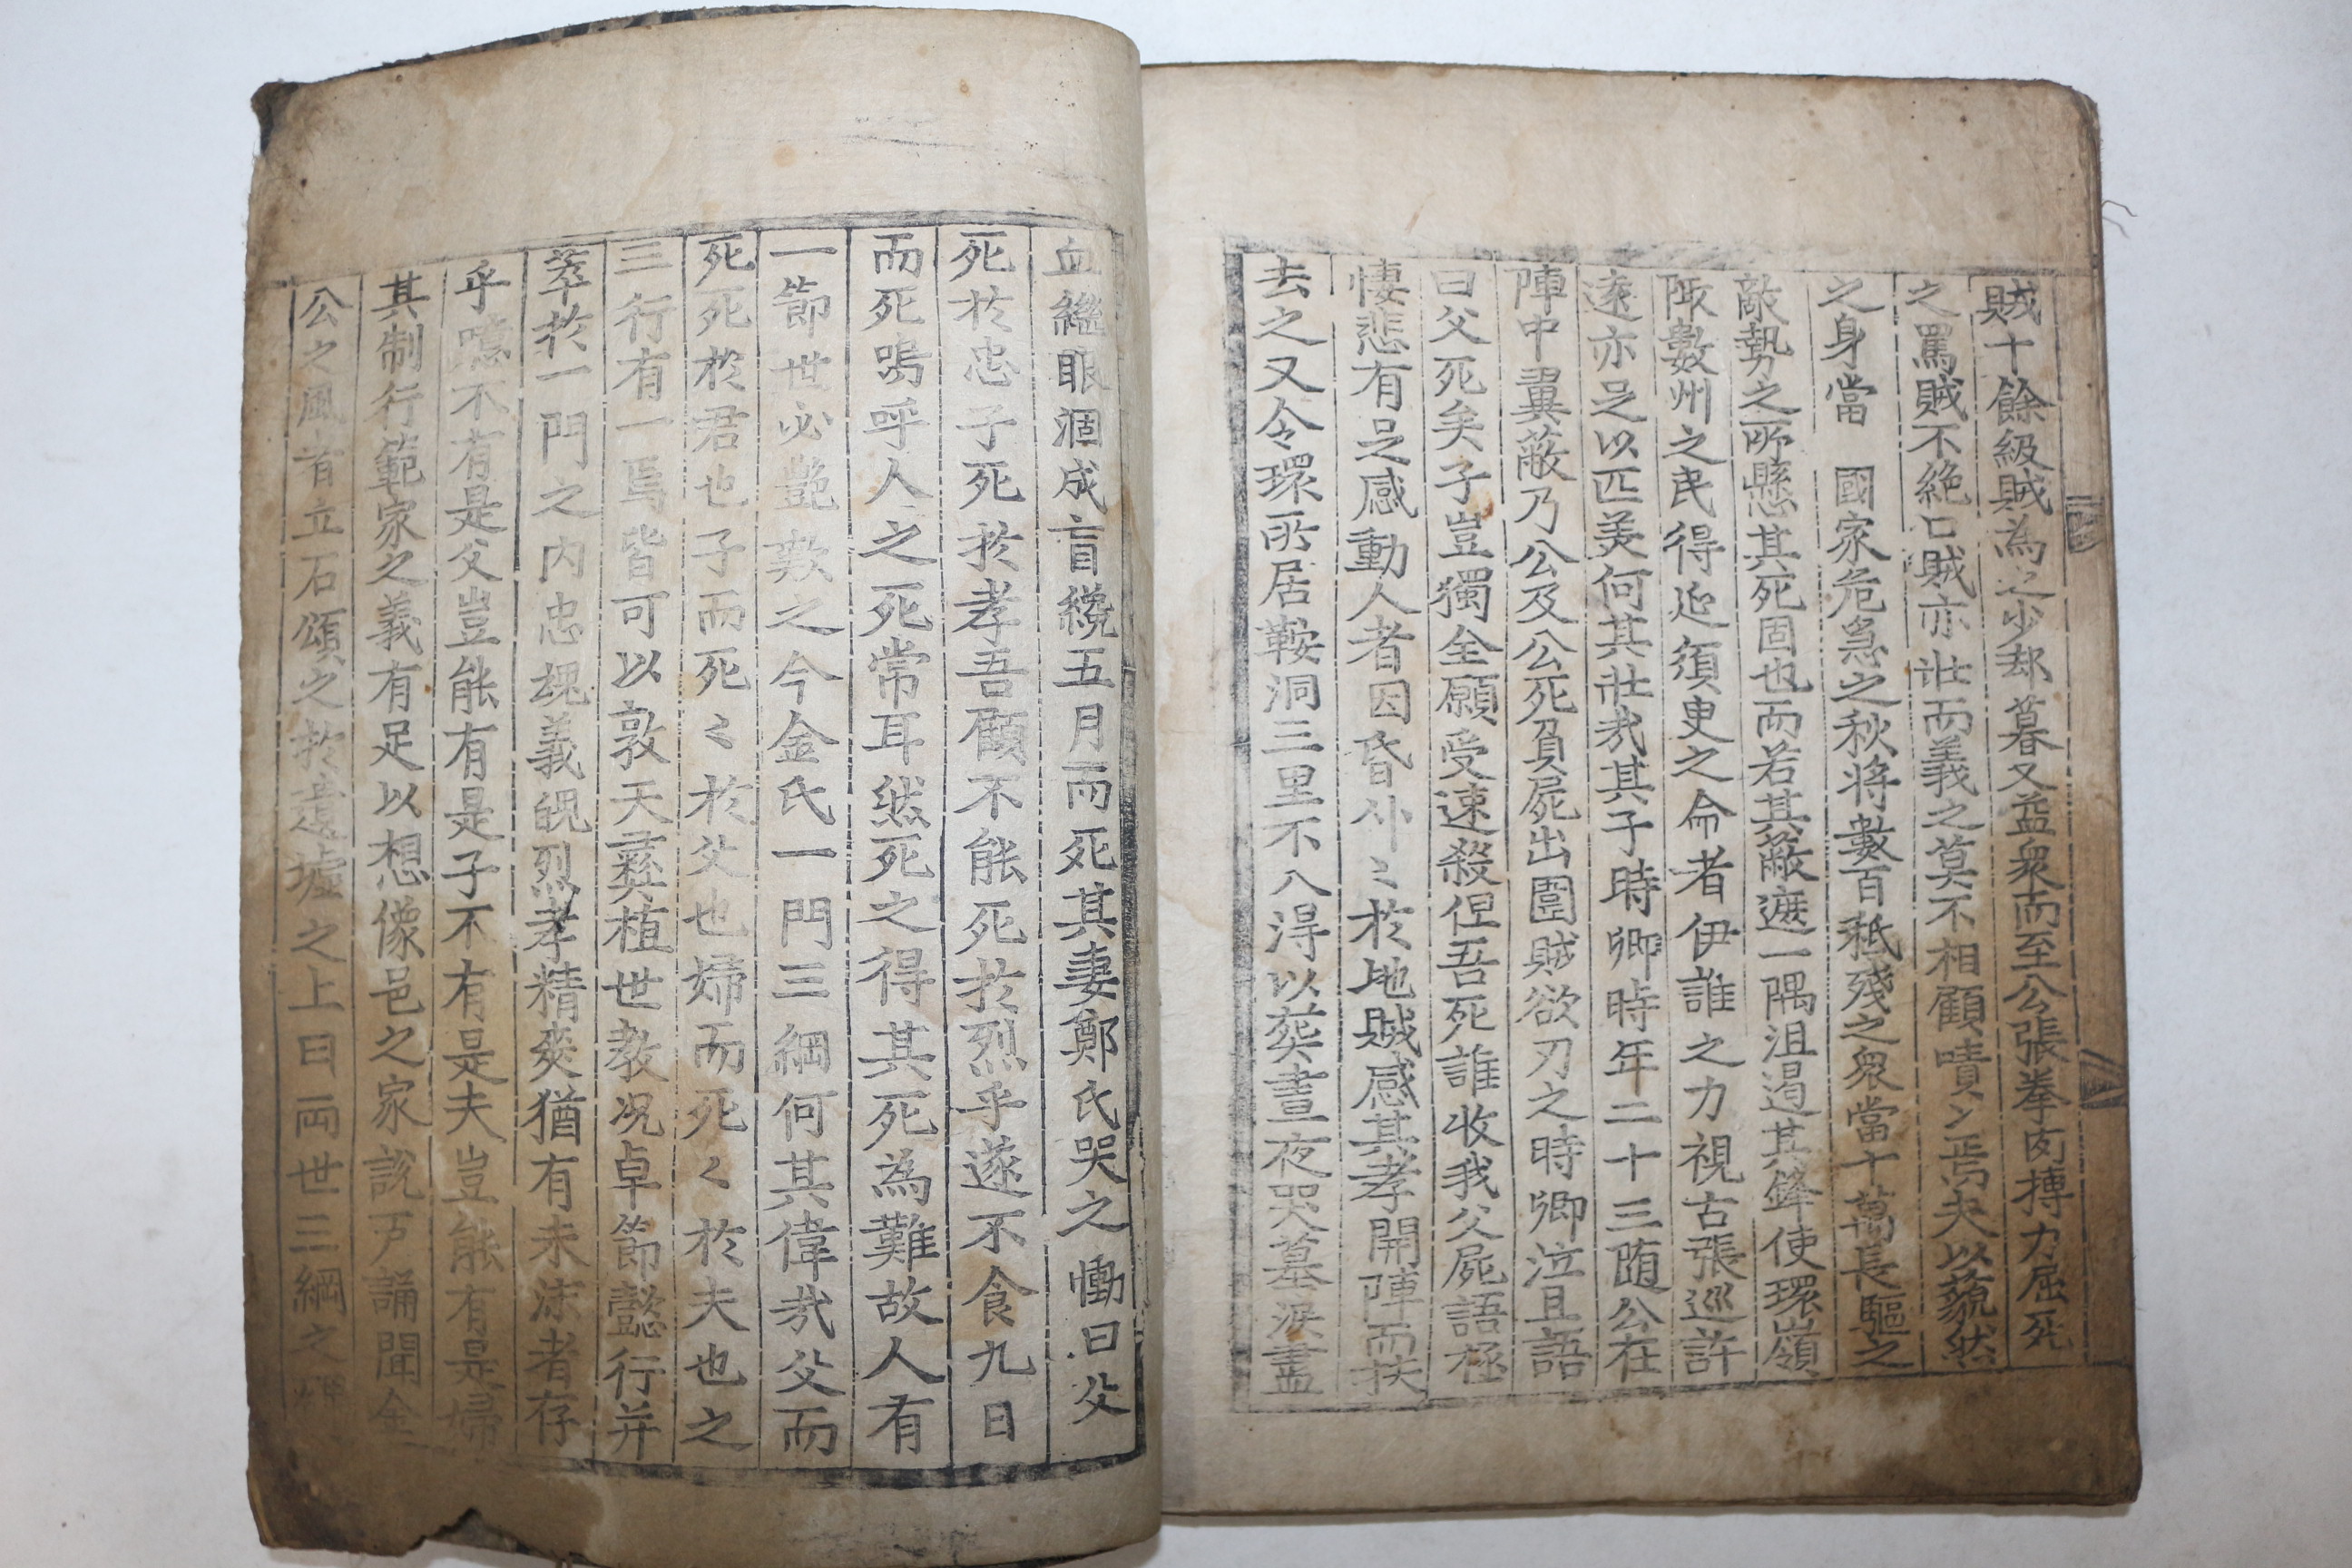 賊十餘級賊為之少却暮又益衆而至公張拳肉搏力屈死
之罵賊不絶口賊亦壯而義之莫不相顧嘖〻焉夫以藐然
之身當 國家危急之秋將數百秖殘之衆當十萬長驅之
敵勢之所懸其死固也而若其蔽遮一隅沮遏其鋒使環嶺
陬數州之民得延須臾之命者伊誰之力視古張巡許
遠亦足以匹美何其壯㢤其子時卿時年二十三隨公在
陣中翼蔽乃公及公死負屍出圍賊欲刃之時卿泣且語
曰父死矣子豈獨全願受速殺但吾死誰收我父屍語極
悽悲有足感動人者因昏仆〻於地賊感其孝開陣而扶
去之又令環所居鞍洞三里不入得以葬晝夜哭墓淚盡
血繼眼涸成盲纔五月而死其妻鄭氏哭之慟曰父
死於忠子死於孝吾顧不能死於烈乎遂不食九日
而死嗚呼人之死常耳然死之得其死為難故人有
一節世必艶歎之今金氏一門三綱何其偉㢤父而
死死於君也子而死〻於父也婦而死〻於夫也之
三行有一焉皆可以敦天彛植世敎况卓節懿行并
萃於一門之內忠魂義魄烈孝精爽猶有未沫者存
乎噫不有是父豈能有是子不有是夫豈能有是婦
其制行範家之義有足以想像邑之家說戶誦聞全
公之風者立石頌之於遺墟之上曰兩世三綱之